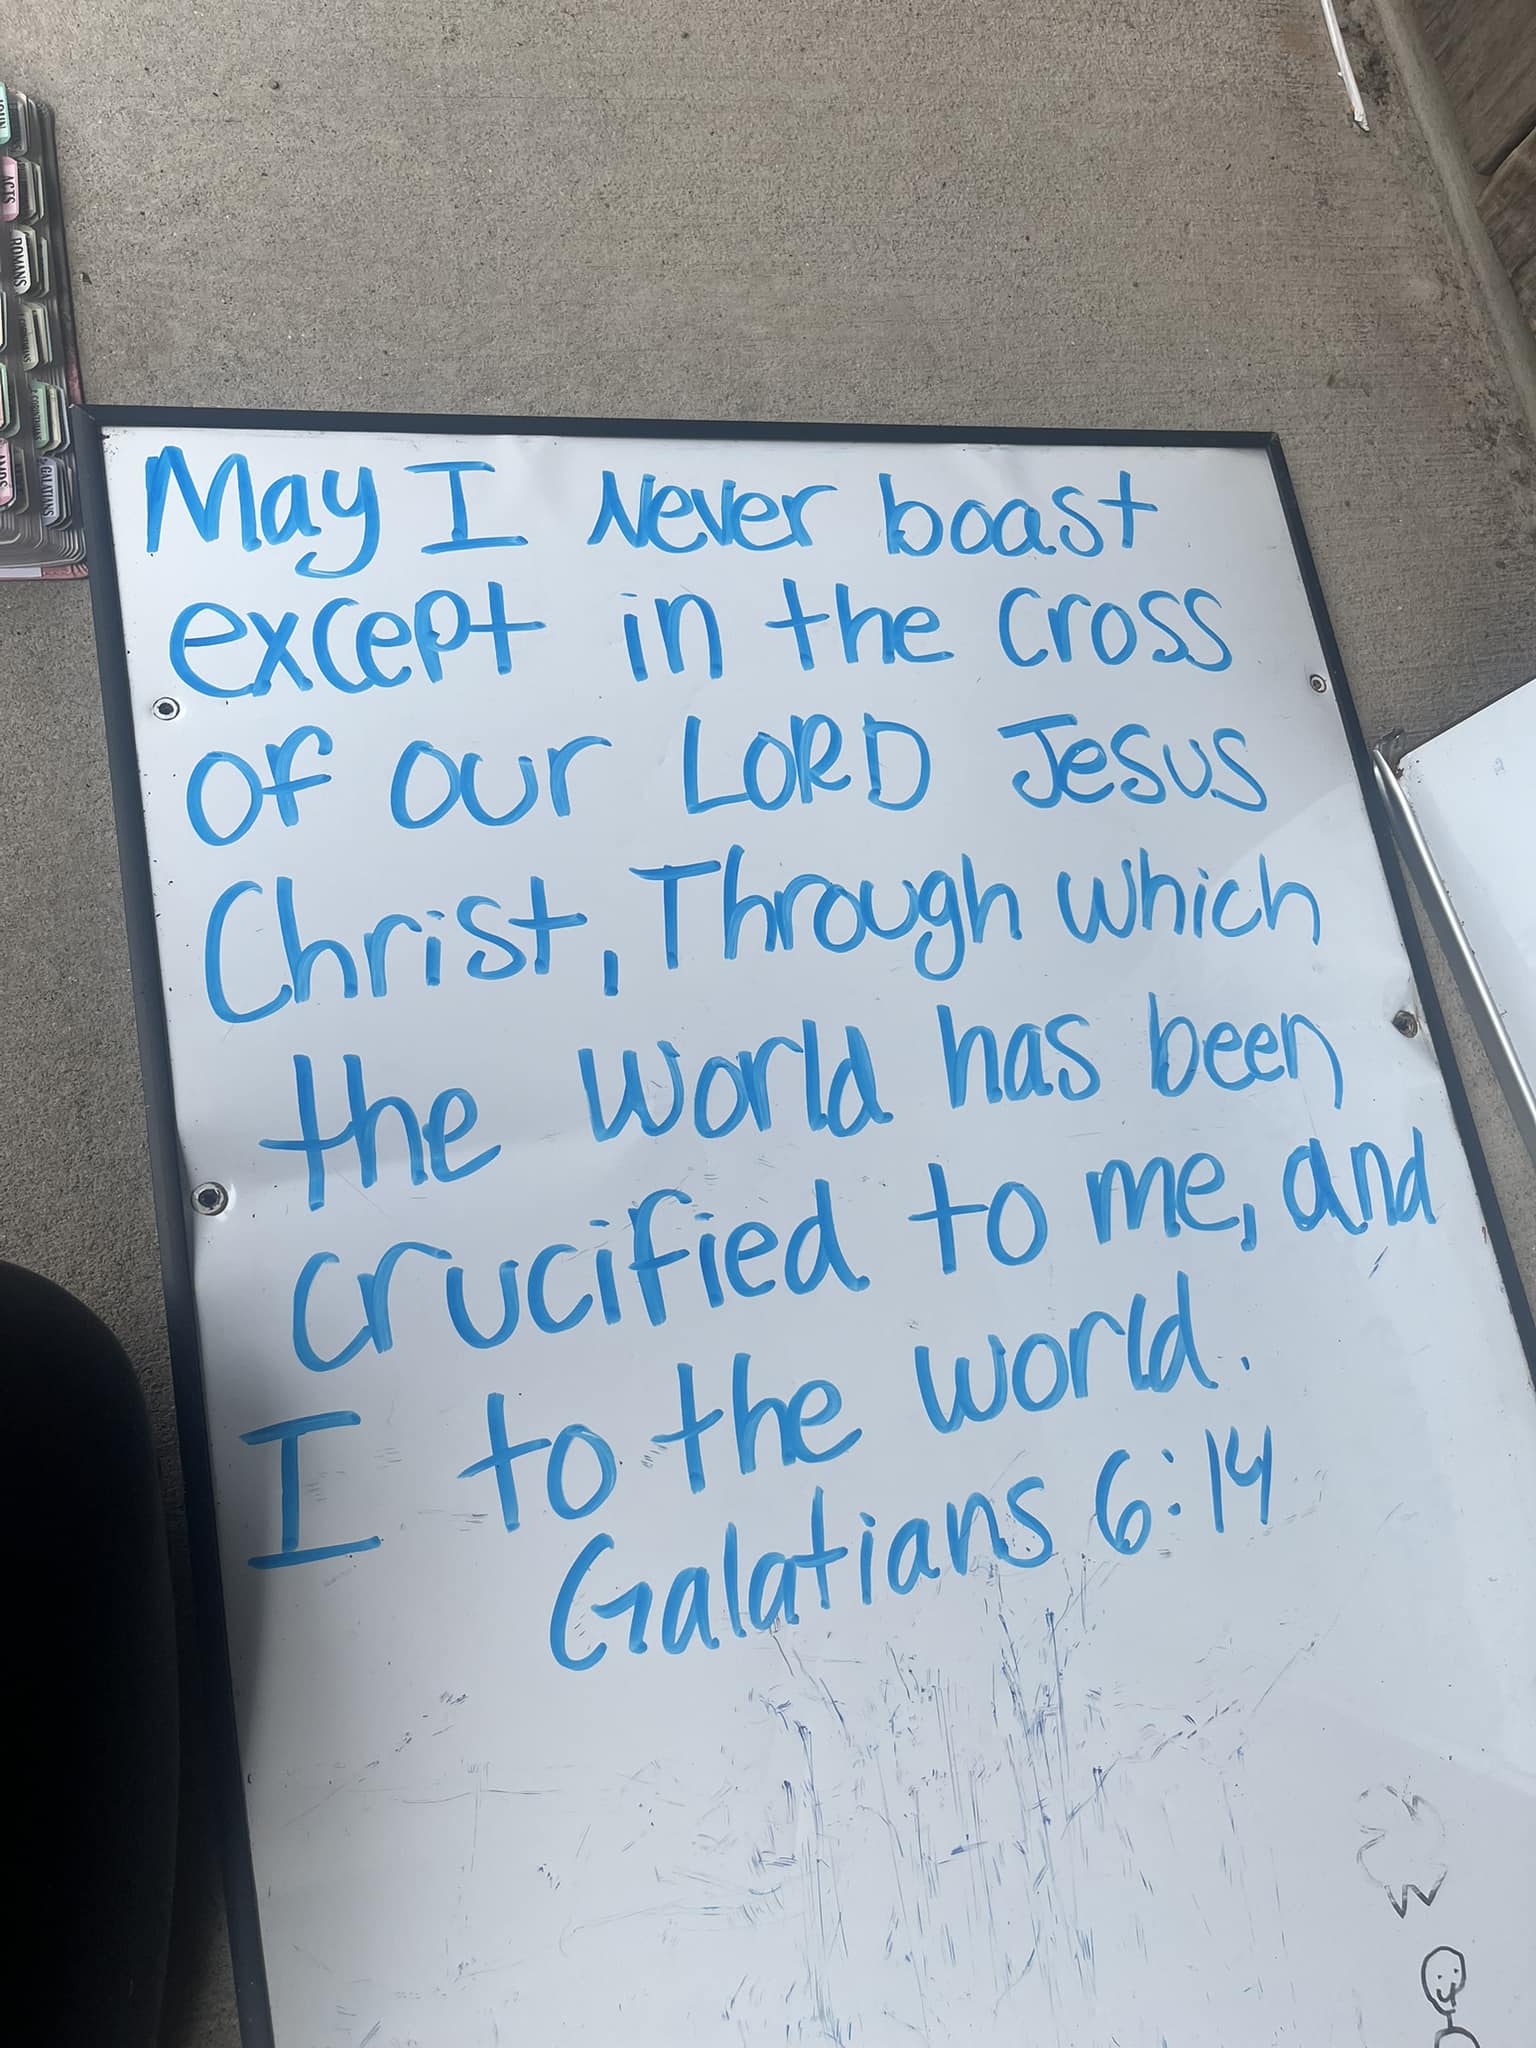 JOHN
ACTS
ROMANS
GALATIANS
May I Never boast
except in the cross
of our LORD Jesus
Christ, Through which
the world has been
crucified to me, and
I to the world.
Galatians 6:14